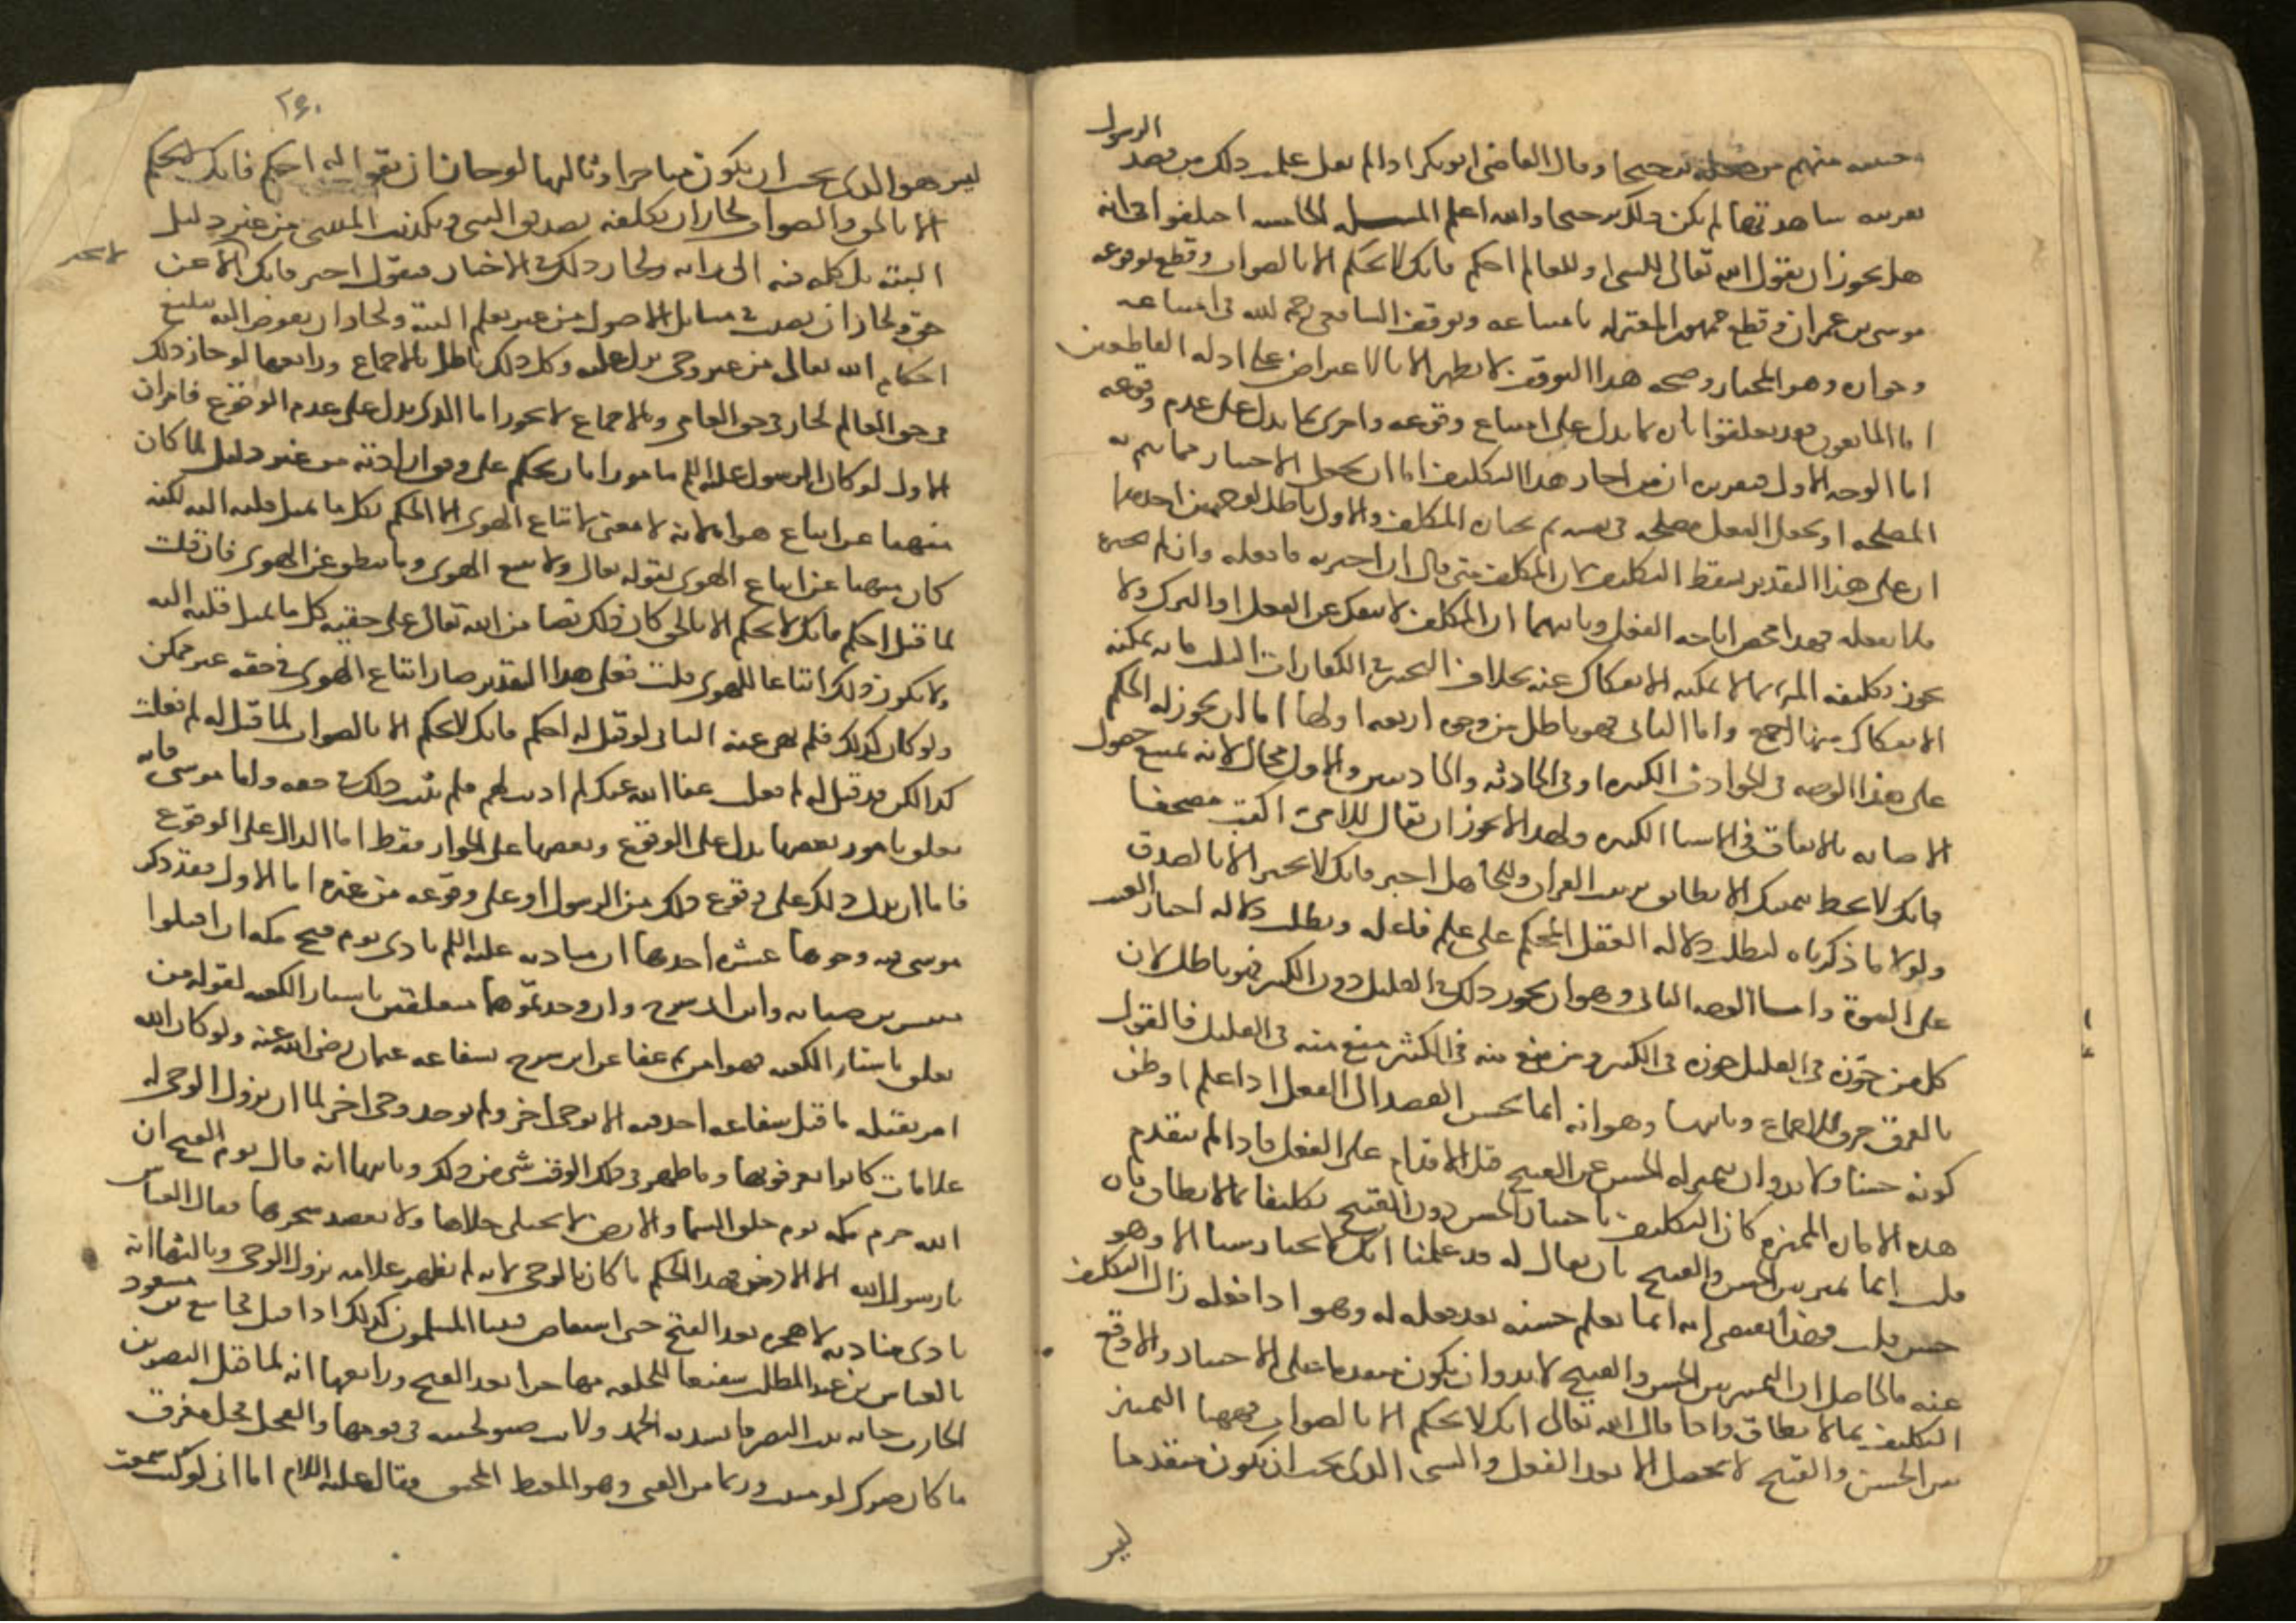 الرسول
حسه منهم من جعله ترجيحا وقال القاضي ابو بكر اذا لم نعل علمت ذلك من قصد
بقرينه شاهدتها لم يكن ذلك ترجيحا والله اعلم المسله الخامسه اختلفوا في انه
هل يجوز ان يقول الله تعالى للنبي او للعالم احكم فانك لا تحكم الا بالصواب وقطع بوقوعه
موسى بن عمران وقطع جمهور المعتزله بامتناعه وتوقف الشافعي رحمه الله في امتناعه
وجوازه وهو المختار وصحه هذا التوقف لا تظهر الا بالاعتراض على ادله القاطعين
اما المانعون فقد تعلقوا تاره بما يدل على امتناع وقوعه واخرى بما يدل على عدم وقوعه
اما الوجه الاول فتقريره ان من اجاز هذا التكليف اما ان يجعل الاختيار مما تتم به
المصلحه او يجعل الفعل مصلحه في نفسه ثم يختاره المكلف والاول باطل لوجهين احدهما
ان على هذا التقدير يسقط التكليف لان المكلف متى قال ان اخترته فافعله وان لم تختره
فلا تفعله فهذا محض اباحه الفعل وثانيهما ان المكلف لا ينفك عن الفعل او الترك ولا
يجوز تكليف المرء بما لا يمكنه الانفكاك عنه بخلاف التخيير في الكفارات الثلث فانه يمكنه
الانفكاك عنها اجمع واما الثاني فهو باطل من وجوه اربعه اولها اما ان يجوز له الحكم
على هذا الوجه في الحوادث الكثيره او في الحادثه والحادثتين والاول محال لانه يمتنع حصول
الاصابه بالاتفاق في الاشيا الكثيره ولهذا لا يجوز ان يقال للامي اكتب مصحفا
فانك لا تخط بيمينك الا ما يطابق ترتيب القران وللجاهل اخبر فانك لا تخبر الا بالصدق
ولولا ما ذكرناه لبطلت دلاله الفعل المحكم على علم فاعله وبطلت دلاله اخبار الغيب
على النبوه واما الوجه الثاني وهو ان يجوز ذلك في القليل دون الكثير فهو باطل لان
كل من جوزه في القليل جوزه في الكثير ومن منع منه في الكثير منع منه في القليل فالقول
بالفرق خرق للاجماع وثانيها وهو انه انما يحسن القصد الى الفعل اذا علم او ظن
كونه حسنا ولا بد وان يتميز له الحسن عن القبيح قبل الاقدام على الفعل فاذا لم يتقدم
هذه الاماره المميزه كان التكليف باختيار الحسن دون القبيح تكليفا بما لا يطاق فان
قلت انما تميز بين الحسن والقبيح بان يقال له قد علمنا انك لا تختار شيئا الا وهو
حسن قلت فهذا يقتضي انه انما يعلم حسنه بعد فعله له وهو اذا فعله زال التكليف
عنه فالحاصل ان التمييز بين الحسن والقبيح لا بد وان يكون متقدما على الاختيار والا وقع
التكليف بما لا يطاق واذا قال الله تعالى انك لا تحكم الا بالصواب فههنا التمييز
بين الحسن والقبيح لا يحصل الا بعد الفعل والشي الذي يجب ان يكون متقدما
ليس
٢٤٠
ليس هو الذي يجب ان يكون متاخرا وثالثها لو جاز ان يقول له احكم فانك لا تحكم
الا بالحق والصواب لجاز ان يكلفه تصديق النبي وتكذيب المتنبي من غير دليل
البته بل يكله فيه الى رايه ولجاز ذلك في الاخبار فيقول اخبر فانك لا عن
لا تخبر
حق ولجاز ان يصيب في مسائل الاصول من غير تعلم البته ولجاز ان يفوض اليه تبليغ
احكام الله تعالى من غير وحي يدل عليه وكل ذلك باطل بالاجماع ورابعها لو جاز ذلك
في حق العالم لجاز في حق العامي وبالاجماع لا يجوز اما الذي يدل على عدم الوقوع فامران
الاول لو كان الرسول عليه السلم مامورا بان يحكم على وفق ارادته من غير دليل لما كان
منهيا عن اتباع هواه لانه لا معنى لاتباع الهوى الا الحكم بكل ما يميل قلبه اليه لكنه
كان منهيا عن اتباع الهوى لقوله تعالى ولا تتبع الهوى وما ينطق عن الهوى فان قلت
لما قيل احكم فانك لا تحكم الا بالحق كان ذلك نصا من الله تعالى على حقيه كل ما يميل قلبه اليه
ولا يكون ذلك اتباعا للهوى قلت فعلى هذا التقدير صار اتباع الهوى في حقه غير ممكن
ولو كان كذلك فلم نهي عنه الثاني لو قيل له احكم فانك لا تحكم الا بالصواب لما قيل له لم فعلت
كذا لكن قد قيل له لم فعلت عفا الله عنك لم اذنت لهم فلم يثبت ذلك في حقه واما موسى فانه
تعلق بامور بعضها يدل على الوقوع وبعضها على الجواز فقط اما الدال على الوقوع
فاما ان يدل ذلك على وقوع ذلك من الرسول او على وقوعه من غيره اما الاول فقد ذكر
موسى فيه وجوها عشره احدها ان مناديه عليه السلم نادى يوم فتح مكه ان اقتلوا
مقيس بن صبابه وابن ابي سرح وان وجدتموهما متعلقين باستار الكعبه لقوله من
تعلق باستار الكعبه فهو امن ثم عفا عن ابن سرح بشفاعه عثمان رضي الله عنه ولو كان الله
امر بقتله ما قبل شفاعه احد فيه الا بوحي اخر ولم يوجد وحي اخر لما ان نزول الوحي له
علامات كانوا يعرفونها وما ظهر في ذلك الوقت شي من ذلك وثانيها انه قال يوم الفتح ان
الله حرم مكه يوم خلق السما والارض لا يختلى خلاها ولا يعضد شجرها فقال العباس
يا رسول الله الا الاذخر فهذا الحكم ما كان بالوحي لانه لم يظهر علامه نزول الوحي وثالثها انه
نادى مناديه لا هجره بعد الفتح حتى استفاض فيما المسلمون كذلك اذ اقبل مجاشع بن مسعود
بالعباس بن عبد المطلب شفيعا ليجعله مهاجرا بعد الفتح ورابعها انه لما قتل النضر بن
الحارث جاته بنت النضر فانشدته امحمد ولانت ضنو نجيبه في قومها والفحل فحل معرق
ما كان ضرك لو مننت وربما من الفتى وهو المغيظ المحنق فقال عليه السلام اما اني لو كنت سمعت